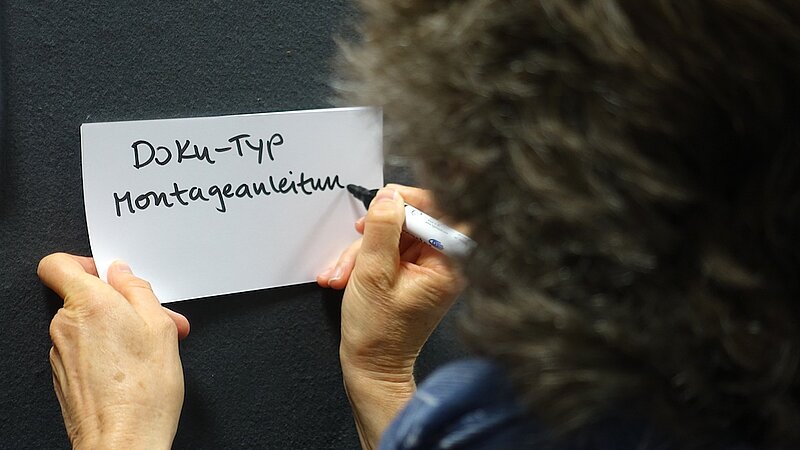 Doku-Typ
Montageanleitun